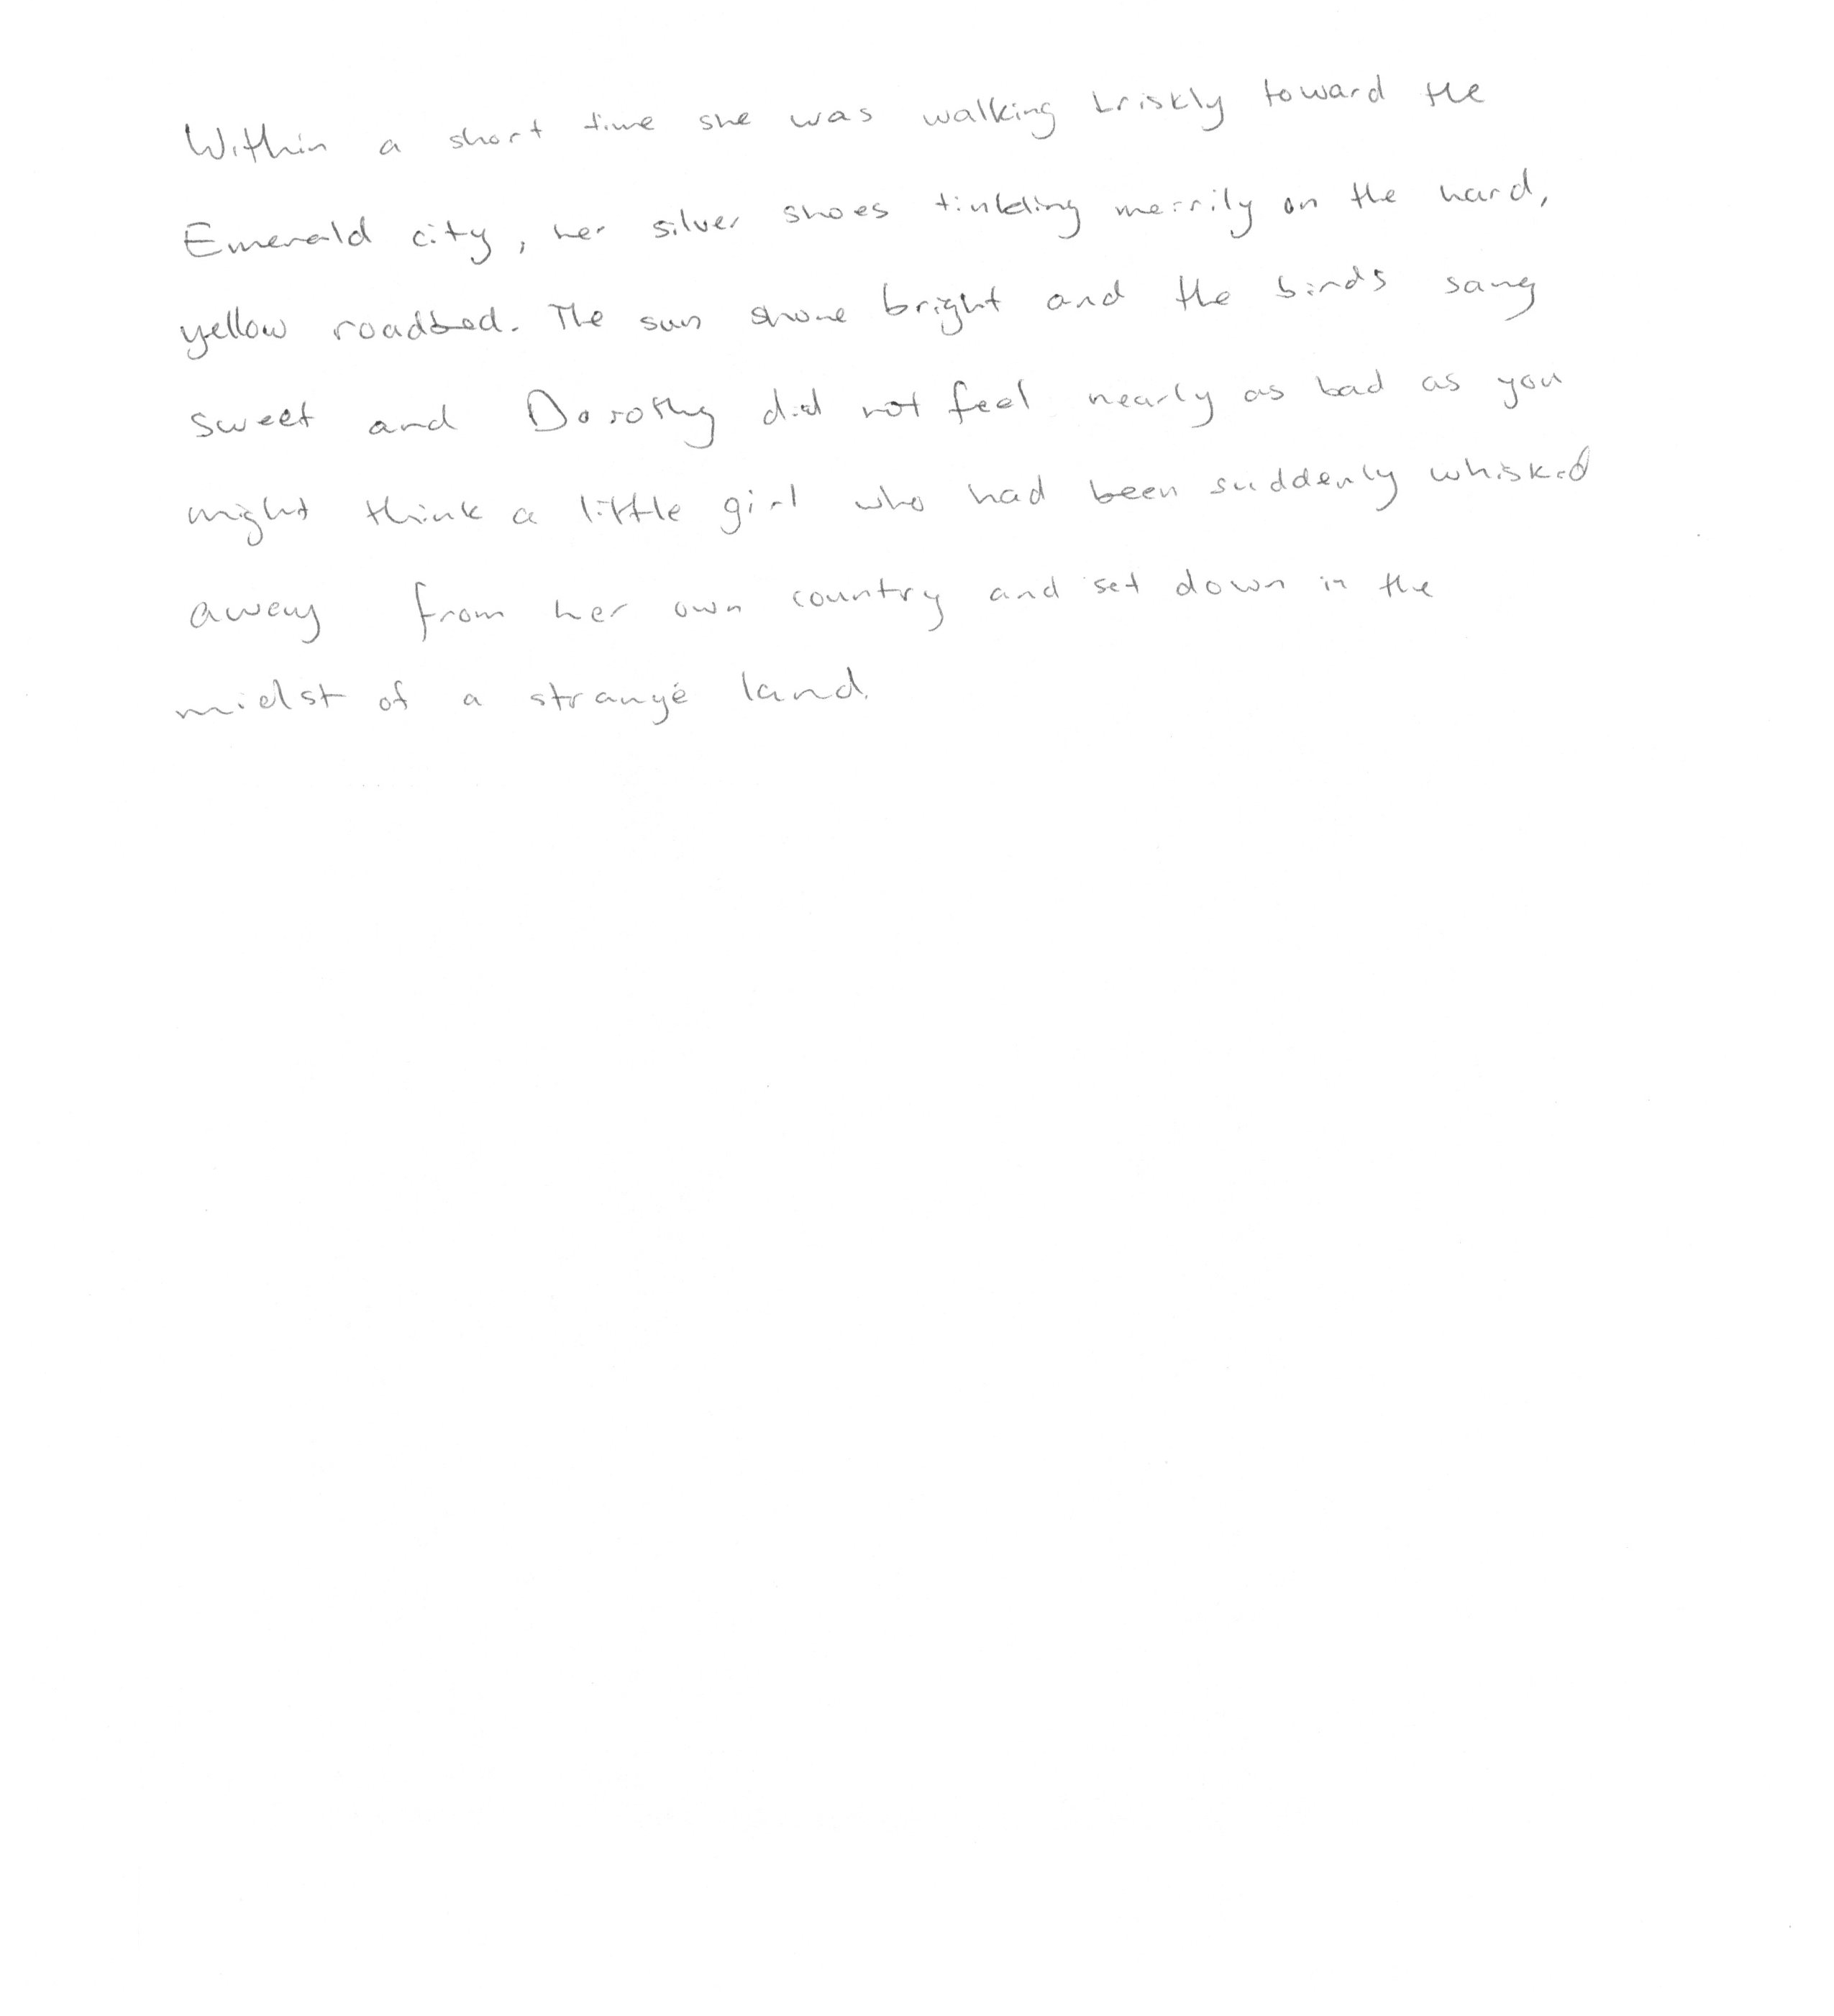 Within a short time she was walking briskly toward the
Emerald city, her silver shoes tinkling merrily on the hard,
yellow roadbed. The sun shone bright and the birds sang
sweet and Dorothy did not feel nearly as bad as you
might think a little girl who had been suddenly whisked
away from her own country and set down in the
midst of a strange land.